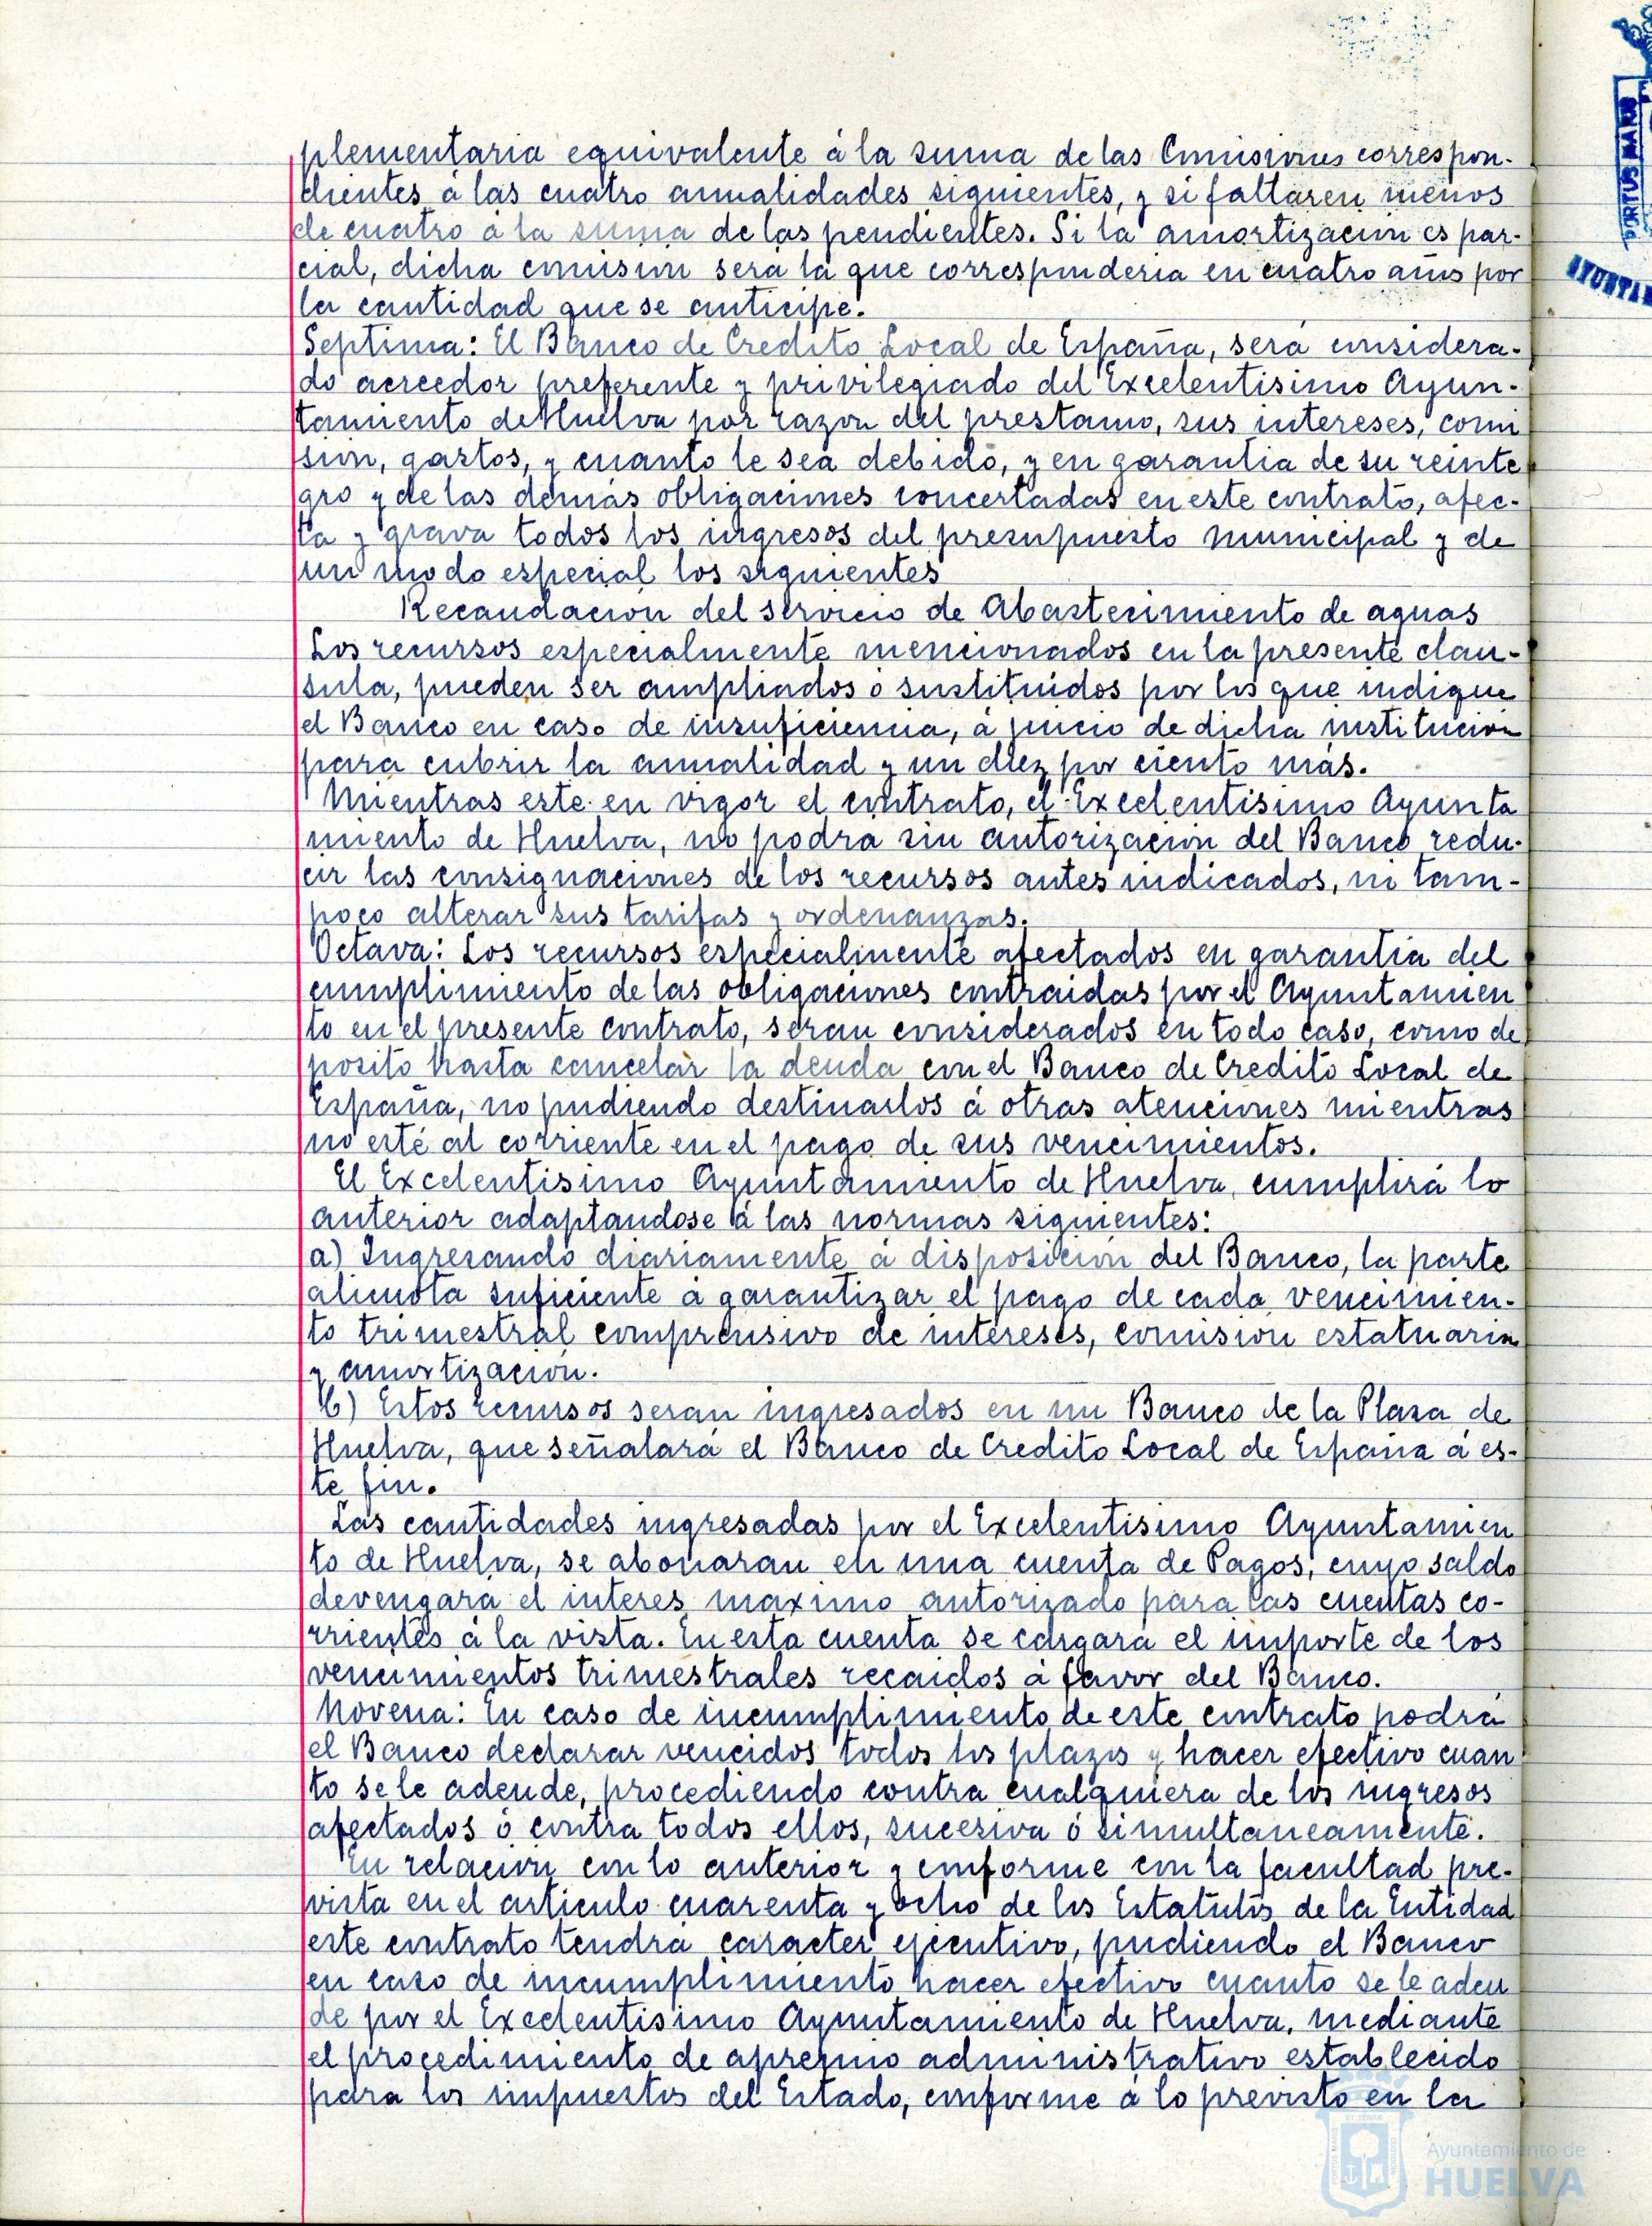 plementaria equivalente á la suma de las Comisiones correspon-
dientes á las cuatro anualidades siguientes, y si faltaren menos
de cuatro á la suma de las pendientes. Si la amortizacion es par-
cial, dicha comision será la que corresponderia en cuatro años por
la cantidad que se anticipe.
Septima: El Banco de Credito Local de España, será considera-
do acreedor preferente y privilegiado del Excelentisimo Ayun-
tamiento de Huelva por razon del prestamo, sus intereses, comi
sion, gastos, y cuanto le sea debido, y en garantia de su reinte
gro y de las demás obligaciones concertadas en este contrato, afec-
ta y grava todos los ingresos del presupuesto municipal y de
un modo especial los siguientes
Recaudación del servicio de Abastecimiento de aguas
Los recursos especialmente mencionados en la presente clau-
sula, pueden ser ampliados o sustituidos por los que indique
el Banco en caso de insuficiencia, á juicio de dicha institucion
para cubrir la anualidad y un diez por ciento más.
Mientras este en vigor el contrato, el Excelentisimo Ayunta
miento de Huelva, no podra sin autorización del Banco redu-
cir las consignaciones de los recursos antes indicados, ni tam-
poco alterar sus tarifas y ordenanzas.
Octava: Los recursos especialmente afectados en garantia del
cumplimiento de las obligaciones contraidas por el Ayuntamien
to en el presente contrato, seran considerados en todo caso, como de
posito hasta cancelar la deuda con el Banco de Credito Local de
España, no pudiendo destinarlos á otras atenciones mientras
no esté al corriente en el pago de sus vencimientos.
El Excelentisimo Ayuntamiento de Huelva, cumplirá lo
anterior adaptandose á las normas siguientes:
a) Ingresando diariamente á disposición del Banco, la parte
alicuota suficiente á garantizar el pago de cada vencimien-
to trimestral comprensivo de intereses, comision estatuaria
y amortizacion.
b) Estos recursos seran ingresados en un Banco de la Plaza de
Huelva, que señalará el Banco de Credito Local de España á es-
te fin.
Las cantidades ingresadas por el Excelentisimo Ayuntamien
to de Huelva, se abonaran en una cuenta de Pagos, cuyo saldo
devengará el interes maximo autorizado para las cuentas co-
rrientes á la vista. En esta cuenta se cargará el importe de los
vencimientos trimestrales recaidos á favor del Banco.
Novena: En caso de incumplimiento de este contrato podrá
el Banco declarar vencidos todos los plazos y hacer efectivo cuan
to se le adeude, procediendo contra cualquiera de los ingresos
afectados ó contra todos ellos, sucesiva ó simultaneamente.
En relacion con lo anterior y conforme con la facultad pre-
vista en el articulo cuarenta y ocho de los Estatutos de la Entidad
este contrato tendra caracter ejecutivo, pudiendo el Banco
en caso de incumplimiento hacer efectivo cuanto se le adeu
de por el Excelentisimo Ayuntamiento de Huelva, mediante
el procedimiento de apremio administrativo establecido
para los impuestos del Estado, conforme á lo previsto en la
PORTUS MARIS
AYUNTAM
Ayuntamiento de
HUELVA